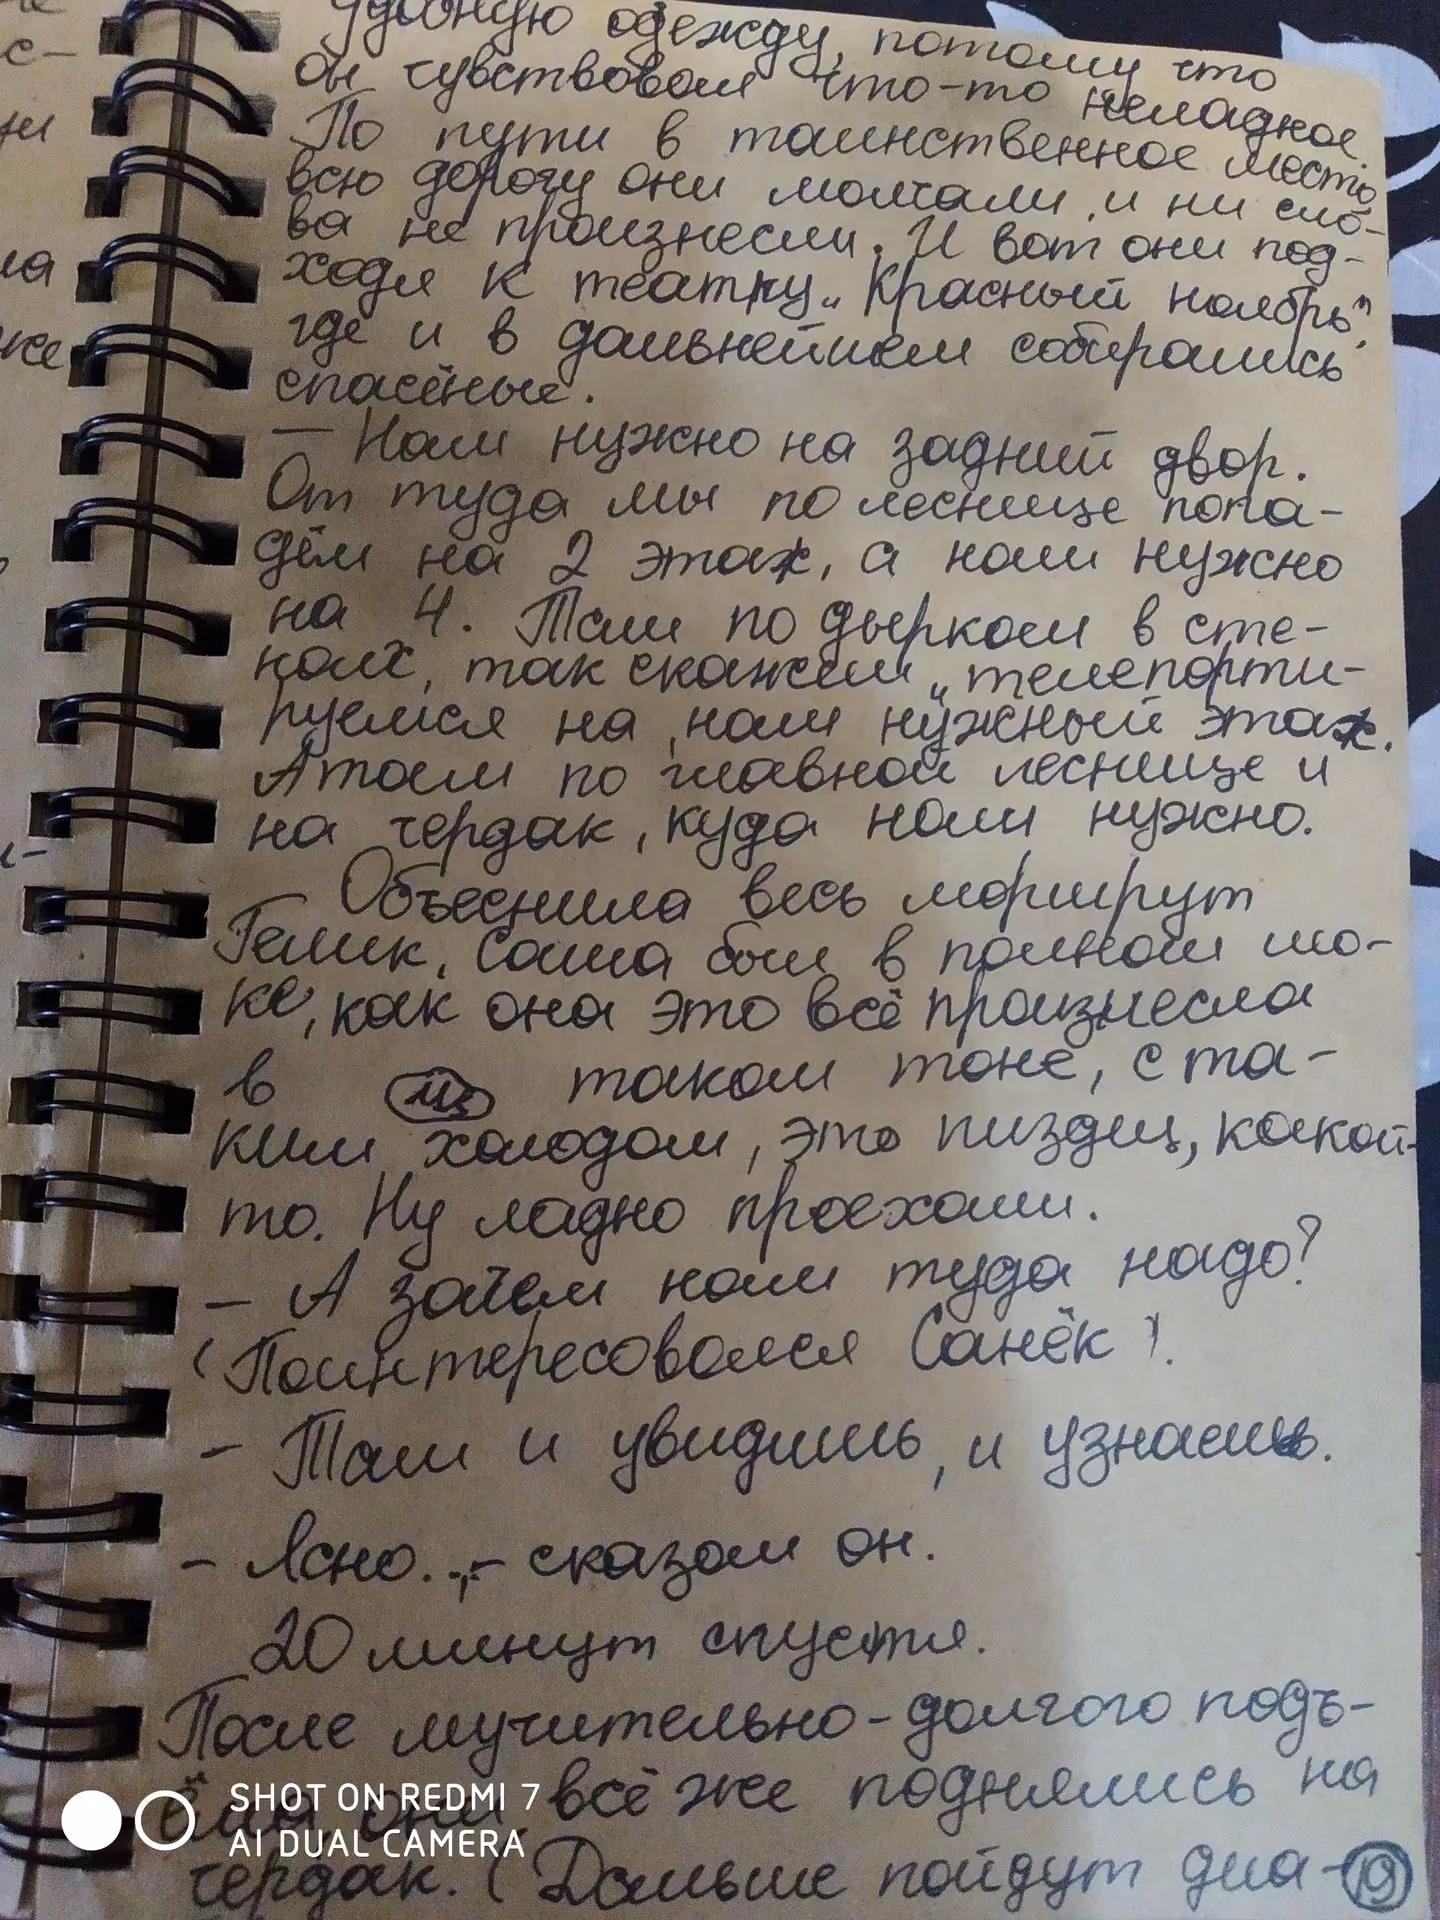 удобную одежду, потому что
он чувствовал что-то неладное.
По пути в таинственное место,
всю дорогу они молчали, и ни сло-
ва не произнесли. И вот они под-
ходя к театру „Красный ноябрь",
где и в дальнейшем собирались
спасёные.
— Нам нужно на задний двор.
От туда мы по леснице попа-
дём на 2 этаж, а нам нужно
на 4. Там по дыркам в сте-
нах, так скажем „телепорти-
руемся на нам нужный этаж.
А там по главной леснице и
на чердак, куда нам нужно.
Объеснила весь моршрут
Гемик, Саша был в полном шо-
ке, как она это всё произнесла
в таком тоне, с та-
ким холодом, это пиздец, какой-
то. Ну ладно проехали.
– А зачем нам туда надо?
(Поинтересовался Санёк).
– Там и увидишь, и узнаешь.
– Ясно..,– сказал он.
20 минут спустя.
После мучительно-долгого подъ-
ёма они всё же поднялись на
чердак. (Дальше пойдут диа-
19
ла
же
SHOT ON REDMI 7
AI DUAL CAMERA